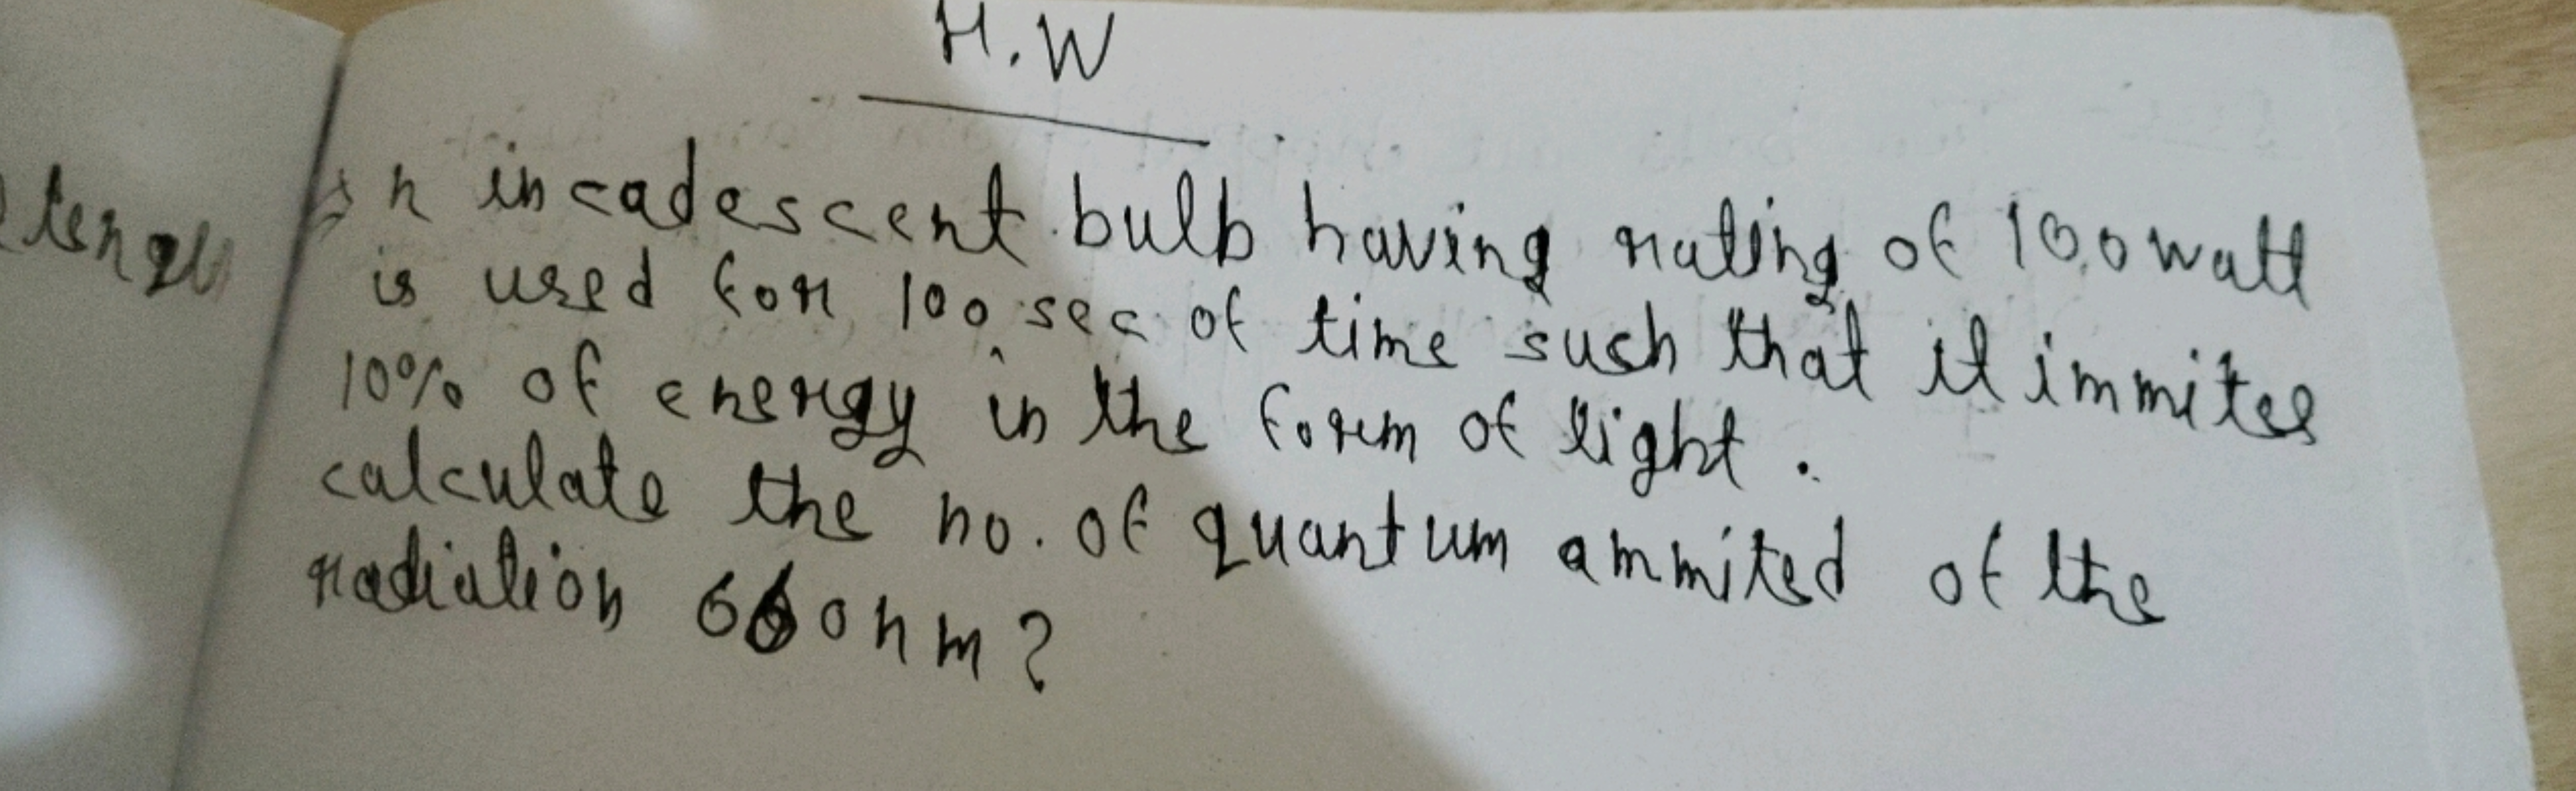 H.W
An incadescent bulb having rating of 100 watt
is used for 100 sec of time such that it immites
10% of energy in the form of light.
calculate the no. of quantum ammited of the
radiation 660nm?